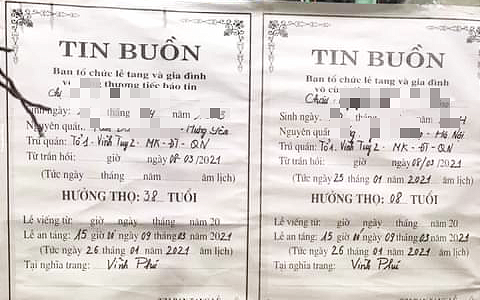 TIN BUỒN
Ban tổ chức lễ tang và gia đình
vô thương tiếc báo tin
Chị
Sinh ngày: năm
Nguyên quán: - Hưng Yên
Trú quán: Tổ 1 - Vĩnh Tuy 2 - MK - ĐT - QN
Từ trần hồi: giờ 08-03/2021
(Tức ngày năm âm lịch)
HƯỞNG THỌ: 38 TUỔI
Lễ viếng từ: giờ ngày tháng năm 20
Lễ an táng: 15 giờ 00 ngày 09 tháng 03 năm 2021
(Tức ngày 26 tháng 01 năm 2021 âm lịch)
Tại nghĩa trang: Vĩnh Phú
TIN BUỒN
Ban tổ chức lễ tang và gia đình
vô thương tiếc báo tin
Cháu
Sinh ngày: tháng năm
Nguyên quán: - Hà Nội
Trú quán: Tổ 1 - Vĩnh Tuy 2 - MK - ĐT - QN
Từ trần hồi: giờ 08/03/2021
(Tức ngày 25 tháng 01 năm 2021 âm lịch)
HƯỞNG THỌ: 08 TUỔI
Lễ viếng từ: giờ ngày tháng năm 20
Lễ an táng: 15 giờ 00 ngày 09 tháng 03 năm 2021
(Tức ngày 26 tháng 01 năm 2021 âm lịch)
Tại nghĩa trang: Vĩnh Phú